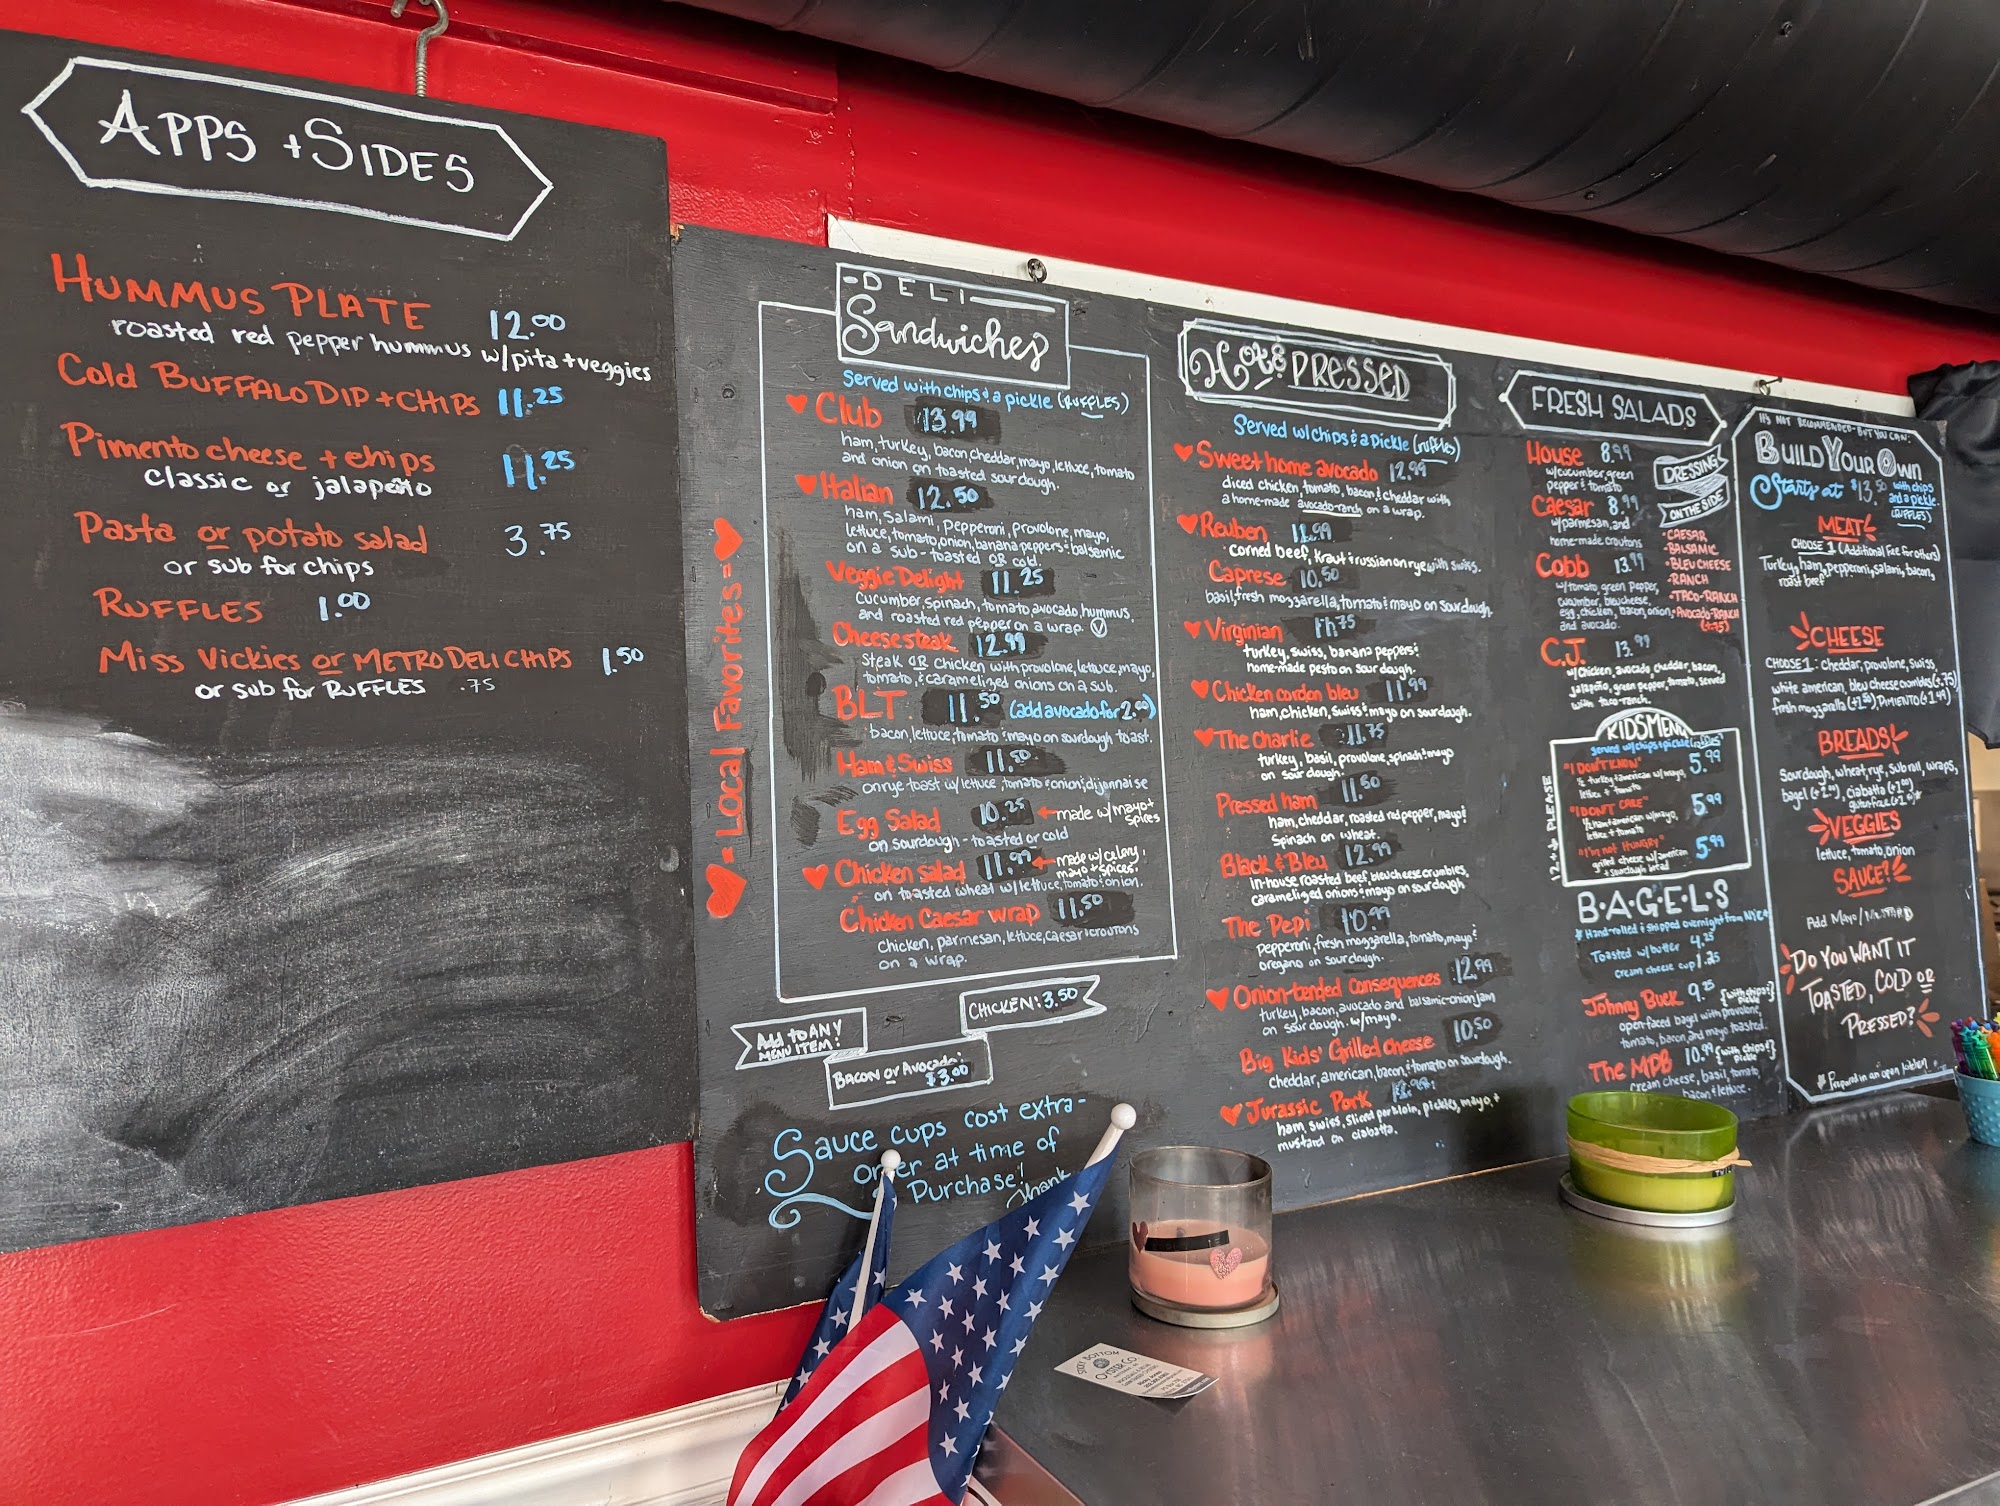 APPS + SIDES
HUMMUS PLATE 12.00
roasted red pepper hummus w/pita + veggies
Cold BUFFALO DIP + CHIPS 11.25
Pimento cheese + chips 11.25
classic or jalapeño
Pasta or potato salad 3.75
or sub for chips
RUFFLES 1.00
Miss Vickies or METRO DELI CHIPS 1.50
or sub for RUFFLES .75
♥ = Local Favorites = ♥
-DELI-
Sandwiches
Served with chips & a pickle (RUFFLES)
♥ Club 13.99
ham, turkey, bacon, cheddar, mayo, lettuce, tomato
and onion on toasted sourdough.
♥ Italian 12.50
ham, salami, pepperoni, provolone, mayo,
lettuce, tomato, onion, banana peppers & balsamic
on a sub - toasted OR cold.
Veggie Delight 11.25
cucumber, spinach, tomato, avocado, hummus,
and roasted red pepper on a wrap. V
Cheesesteak 12.99
Steak OR Chicken with provolone, lettuce, mayo,
tomato, & caramelized onions on a sub.
BLT 11.50 (add avocado for 2.00)
bacon, lettuce, tomato & mayo on sourdough toast.
Ham & Swiss 11.50
on rye toast w/ lettuce, tomato & onion & dijonnaise
Egg Salad 10.25 ← made w/ mayo + spices
on sourdough - toasted or cold
♥ Chicken salad 11.99 ← made w/ celery, mayo + spices.
on toasted wheat w/ lettuce, tomato & onion.
Chicken Caesar wrap 11.50
chicken, parmesan, lettuce, caesar & croutons
on a wrap.
Add to ANY
MENU ITEM!
CHICKEN: 3.50
BACON or Avocado:
$3.00
Sauce cups cost extra -
order at time of
Purchase!
Thank
Hot & PRESSED
Served w/ chips & a pickle (ruffles)
♥ Sweet home avocado 12.99
diced chicken, tomato, bacon & cheddar with
a home-made avocado-ranch on a wrap.
♥ Reuben 11.99
corned beef, kraut & russian on rye with swiss.
Caprese 10.50
basil, fresh mozzarella, tomato & mayo on sourdough.
♥ Virginian 11.75
turkey, swiss, banana peppers &
home-made pesto on sourdough.
♥ Chicken cordon bleu 11.99
ham, chicken, swiss & mayo on sourdough.
♥ The Charlie 11.75
turkey, basil, provolone, spinach & mayo
on sourdough.
Pressed ham 11.50
ham, cheddar, roasted red pepper, mayo &
spinach on wheat.
Black & Bleu 12.99
in-house roasted beef, bleu cheese crumbles,
caramelized onions & mayo on sourdough
The Pepi 10.99
pepperoni, fresh mozzarella, tomato, mayo &
oregano on sourdough.
♥ Onion-tended consequences 12.99
turkey, bacon, avocado and balsamic-onion jam
on sourdough. w/mayo.
Big Kids' Grilled Cheese 10.50
cheddar, american, bacon & tomato on sourdough.
♥ Jurassic Pork
ham, swiss, sliced porkloin, pickles, mayo, +
mustard on ciabatta.
FRESH SALADS
House 8.99
w/cucumber, green
pepper & tomato
Caesar 8.99
w/parmesan, and
home-made croutons
Cobb 13.99
w/tomato, green pepper,
cucumber, bleu cheese,
egg, chicken, bacon, onion,
and avocado.
DRESSING
ON THE SIDE
- CAESAR
- BALSAMIC
- BLEU CHEESE
- RANCH
- TACO-RANCH
- AVOCADO-RANCH
(+.75)
C.J. 13.99
w/chicken, avocado, cheddar, bacon,
jalapeño, green pepper, tomato, served
with taco-ranch.
KIDS MENU
served w/ chips + pickle (ruffles)
12 + ↓ PLEASE
"I DON'T KNOW" 5.99
½ turkey & american w/ mayo,
lettuce + tomato
"I DON'T CARE" 5.99
½ ham & american w/ mayo,
lettuce + tomato
"I'm not HUNGRY" 5.99
grilled cheese w/ american
+ sourdough bread
B·A·G·E·L·S
* Hand-rolled & shipped overnight from NYC *
Toasted w/ butter 4.25
cream cheese cup 1.25
Johnny Buck 9.25 {with chips + pickle}
open-faced bagel with provolone,
tomato, bacon, and mayo toasted.
The MPB 10.99 {with chips + pickle}
cream cheese, basil, tomato
bacon & lettuce.
IT'S NOT RECOMMENDED - BUT YOU CAN:
BUILD YOUR OWN
Starts at $13.50 with chips and a pickle. (RUFFLES)
MEAT
CHOOSE 1 (Additional Fee for others)
Turkey, ham, pepperoni, salami, bacon,
roast beef
CHEESE
CHOOSE 1: cheddar, provolone, swiss
white american, bleu cheese crumbles (+.75)
fresh mozzarella (+1.50) PIMENTO (+1.49)
BREADS
Sourdough, wheat, rye, sub roll, wraps,
bagel (+2.00), ciabatta (+1.00)
VEGGIES
lettuce, tomato, onion
SAUCE?
Add Mayo / MUSTARD
DO YOU WANT IT
TOASTED, COLD OR
PRESSED?
* Prepared in an open kitchen
OYSTER CO